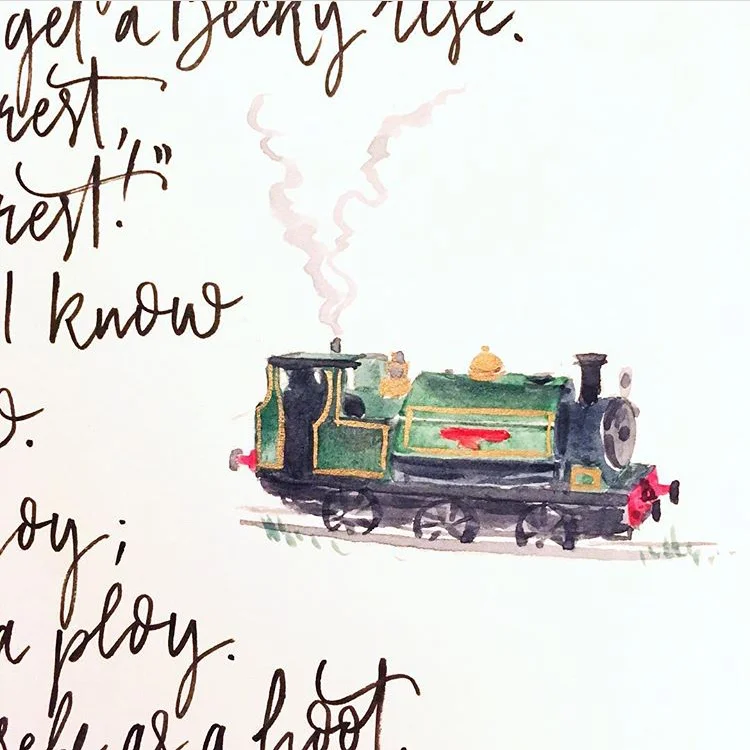 get a Becky rise.
rest,
rest!"
I know
o.
oy;
a ploy.
sely as a hoot.